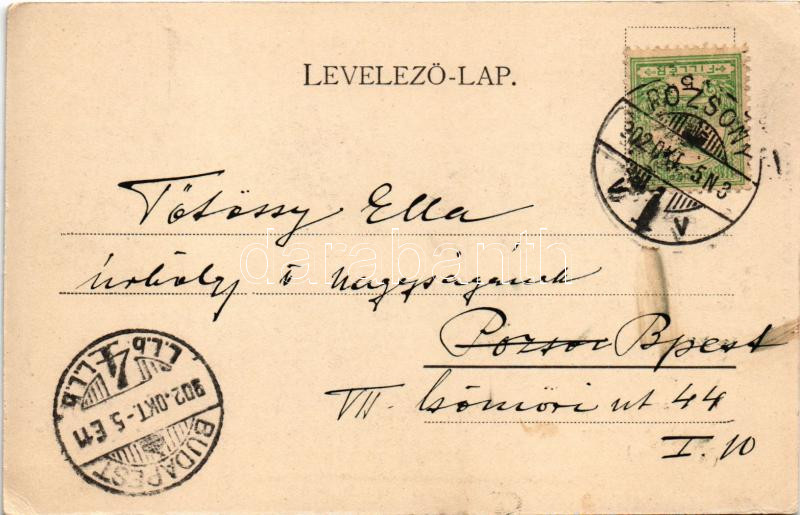 LEVELEZÖ-LAP.
FILLÉR
POZSONY
902.OKT.-5.N3
V
Tötössy Ella
úrhölgy ő Nagyságának
Pozson Bpest
VII. Csömöri út 44
I. 10
L.L.b. 4 L.L.b
902.OKT.-5.E11
BUDAPEST
darabanth